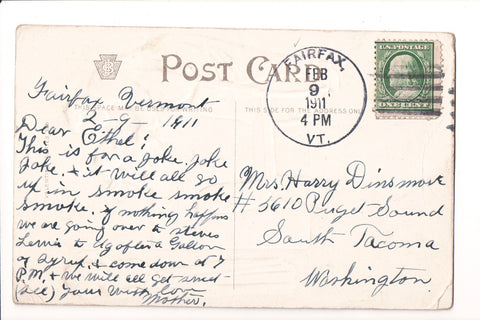 POST CARD
THIS SIDE FOR THE ADDRESS ONLY
FAIRFAX,
FEB
9
1911
4 PM
VT.
U.S. POSTAGE
ONE CENT
Fairfax Vermont
2-9-1911
Dear Ethel;
This is for a joke, joke
Joke, & it will all go
up in smoke smoke
smoke. if nothing happens
we are going over to
Lewis to after a Gallon
of Syrup, & come down at 7
P.M. & we will all get sweet
(See) Yours with love
Mother.
Mrs. Harry Dinsmore
# 5610 Puget Sound
South Tacoma
Washington